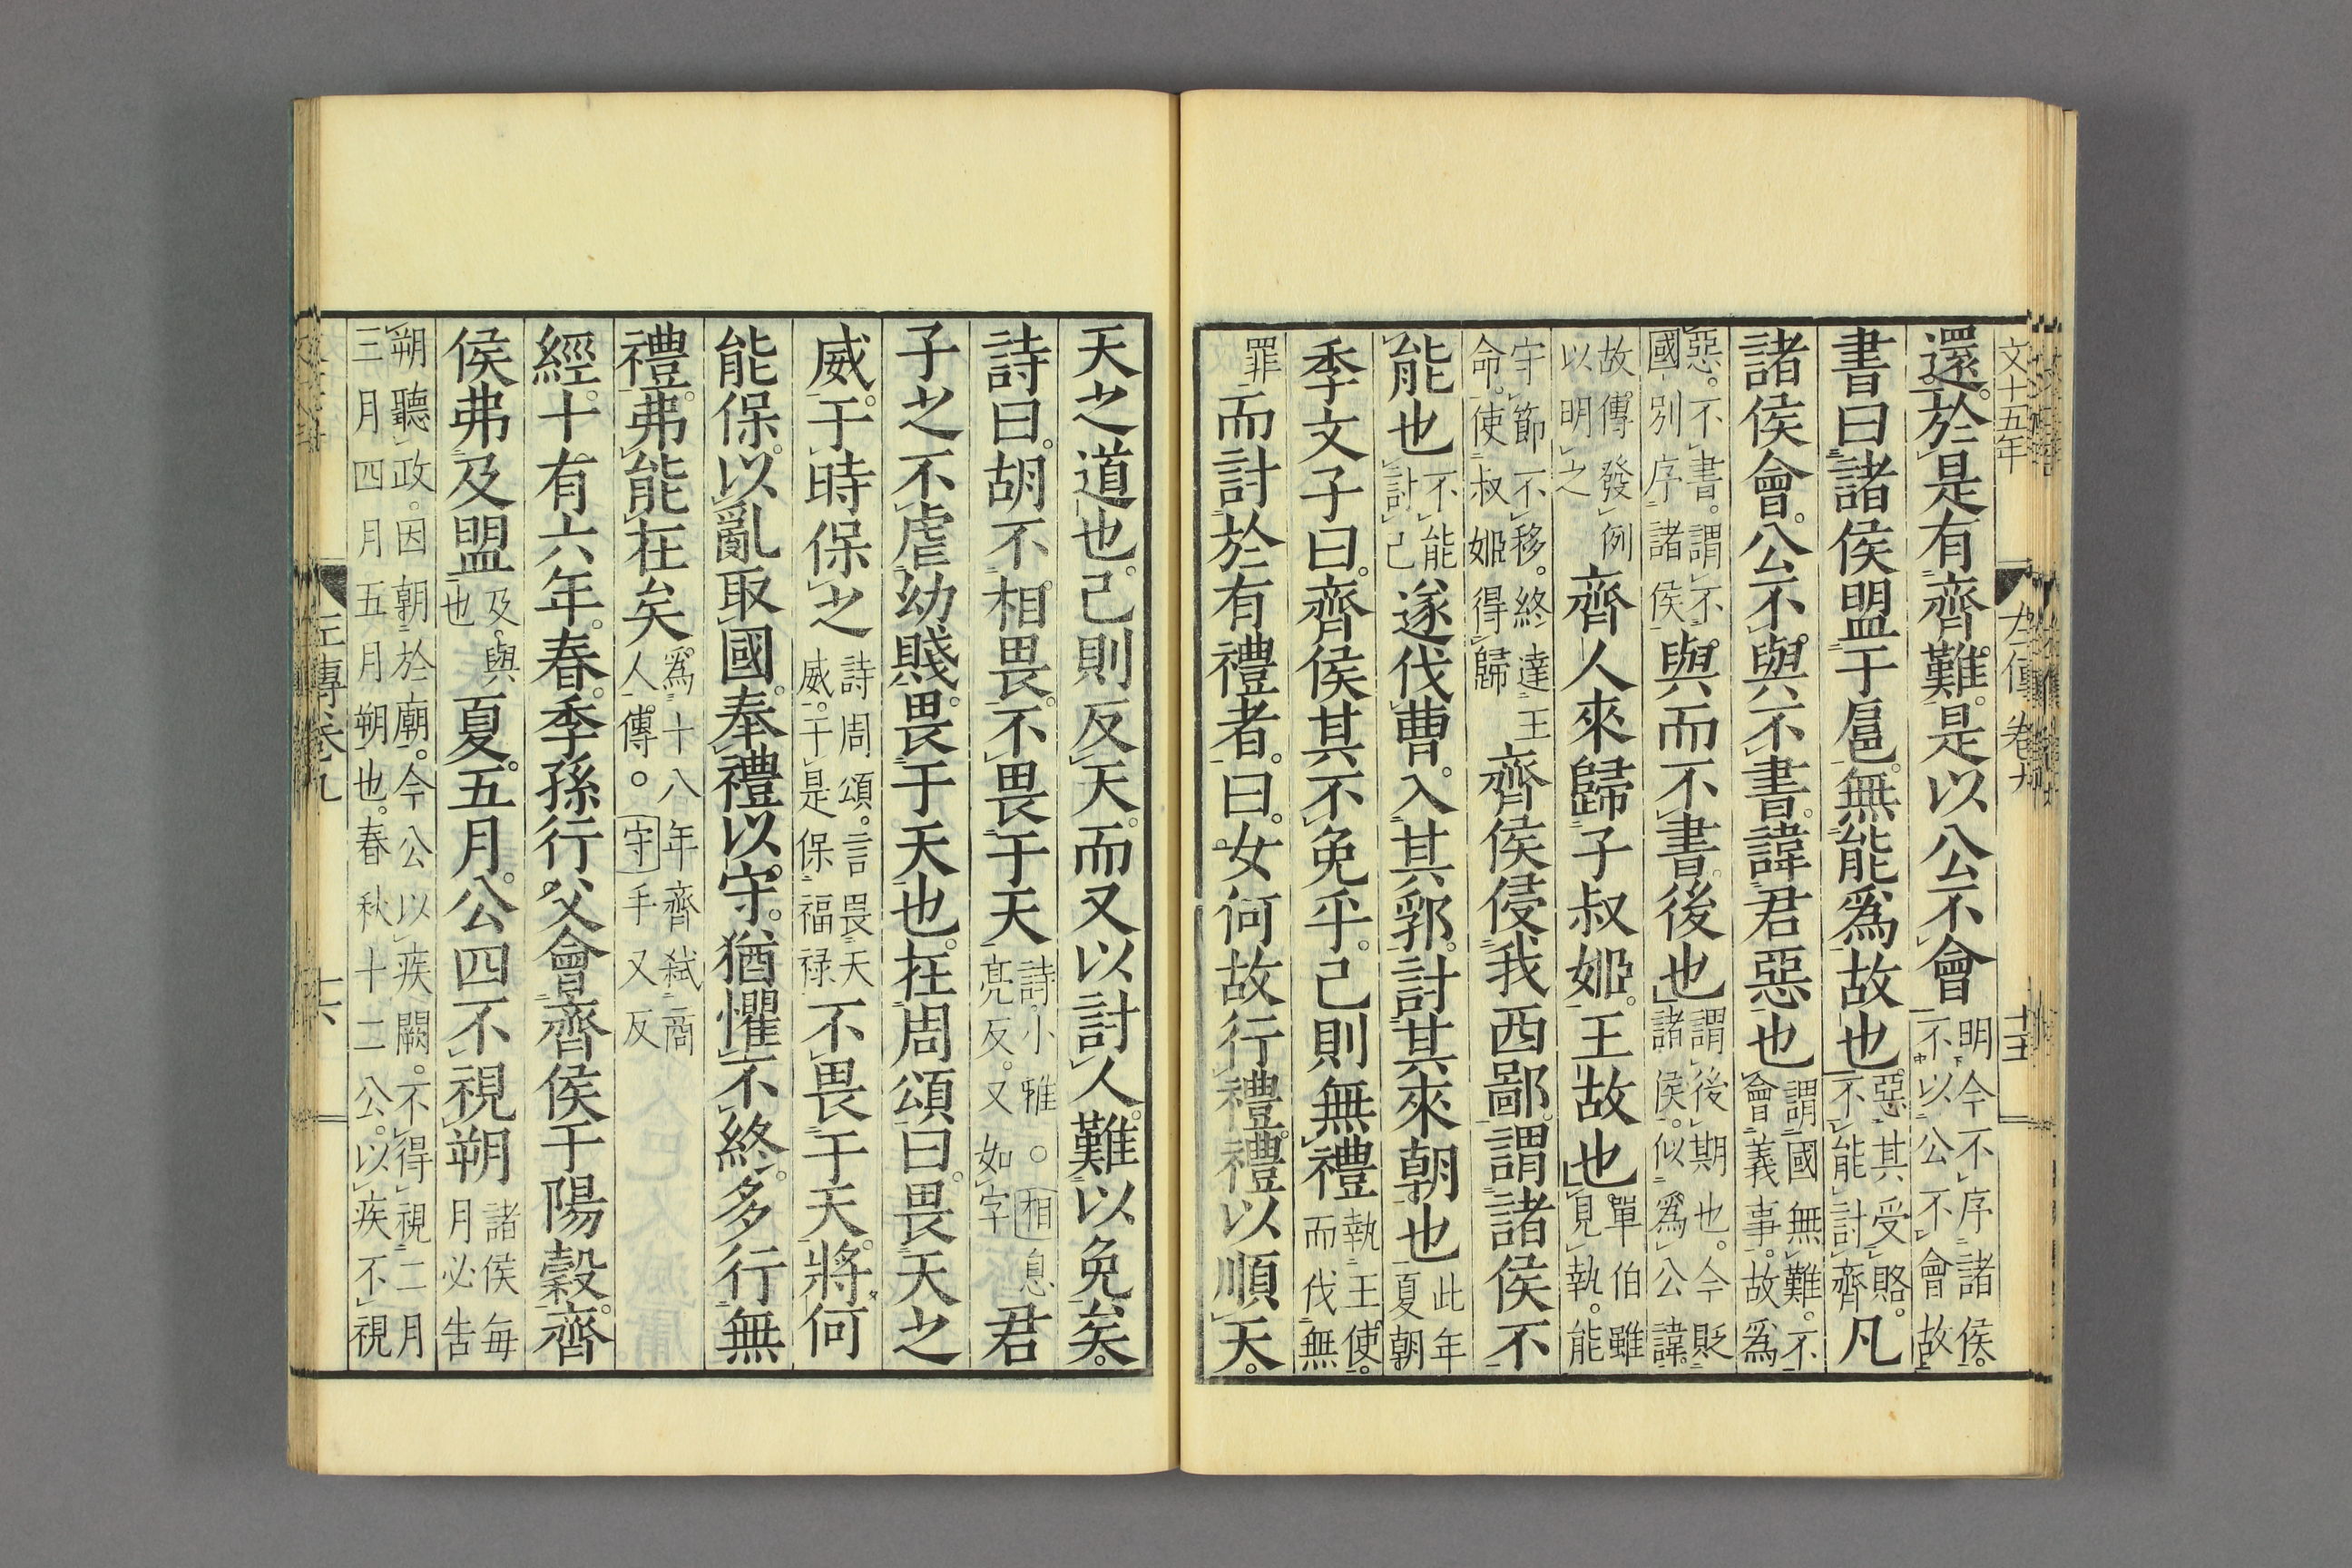 文十五年
左傳卷九
十五
還。於是有齊難。是以公不會明今不序諸侯。不以公不會故
書曰諸侯盟于扈。無能爲故也。惡其受賂。不能討齊凡
諸侯會。公不與。不書。諱君惡也謂國無難。不會義事。故爲
惡。不書。謂不國別序諸侯與而不書後也謂後期也。今貶諸侯。似爲公諱。
故傳發例以明之齊人來歸子叔姬。王故也單伯雖見執。能
守節不移。終達王命。使叔姬得歸齊侯侵我西鄙。謂諸侯不
能也不能討己遂伐曹。入其郛。討其來朝也此年夏朝
季文子曰。齊侯其不免乎。己則無禮執王使。而伐無
罪而討於有禮者。曰。女何故行禮。禮以順天。
天之道也。己則反天。而又以討人。難以免矣。
詩曰。胡不相畏。不畏于天詩。小雅。○相息亮反。又如字君
子之不虐幼賤。畏于天也。在周頌曰。畏天之
威。于時保之詩周頌。言畏天威。于是保福祿不畏于天。將何
能保。以亂取國。奉禮以守。猶懼不終。多行無
禮。弗能在矣爲十八年齊弒商人傳。○守手又反
經。十有六年。春。季孫行父會齊侯于陽穀。齊
侯弗及盟及。與也夏。五月。公四不視朔諸侯每月必告
朔聽政。因朝於廟。今公以疾闕。不得視二月三月四月五月朔也。春秋十二公。以疾不視
左傳卷九
十六